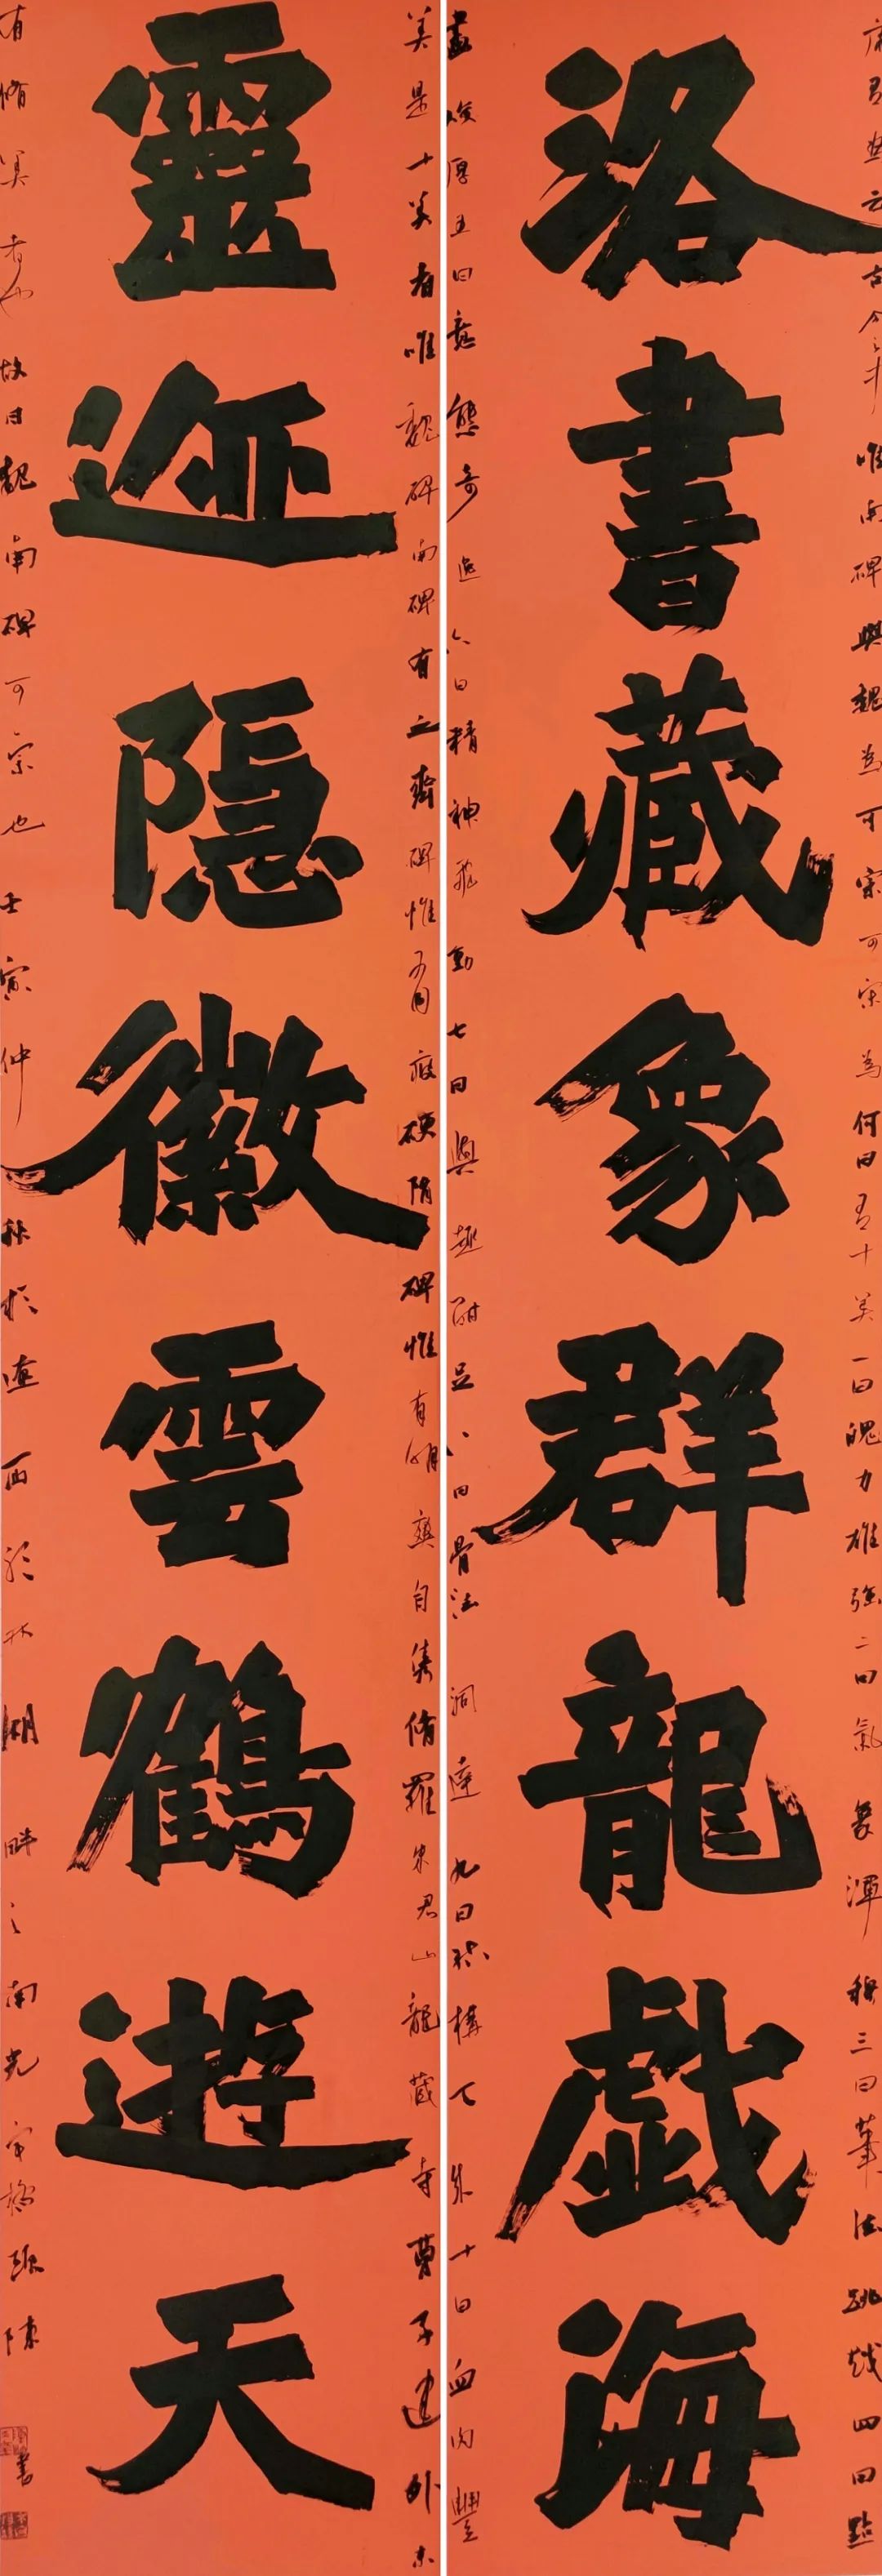 康有為云古今之中唯南碑與魏為可宗可宗為何曰有十美一曰魄力雄強二曰氣象渾穆三曰筆法跳越四曰點
洛書藏象群龍戲海
畫峻厚五曰意態奇逸六曰精神飛動七曰興趣酣足八曰骨法洞達九曰結構天成十曰血肉豐
美是十美者唯魏碑南碑有之齊碑惟有瘦硬隋碑惟有明爽自雋脩羅朱君山龍藏寺曹子建外未
靈迹隱徽雲鶴遊天
有脩美者也故曰魏南碑可宗也壬寅仲秋於遼西 湖畔之南 陳 書